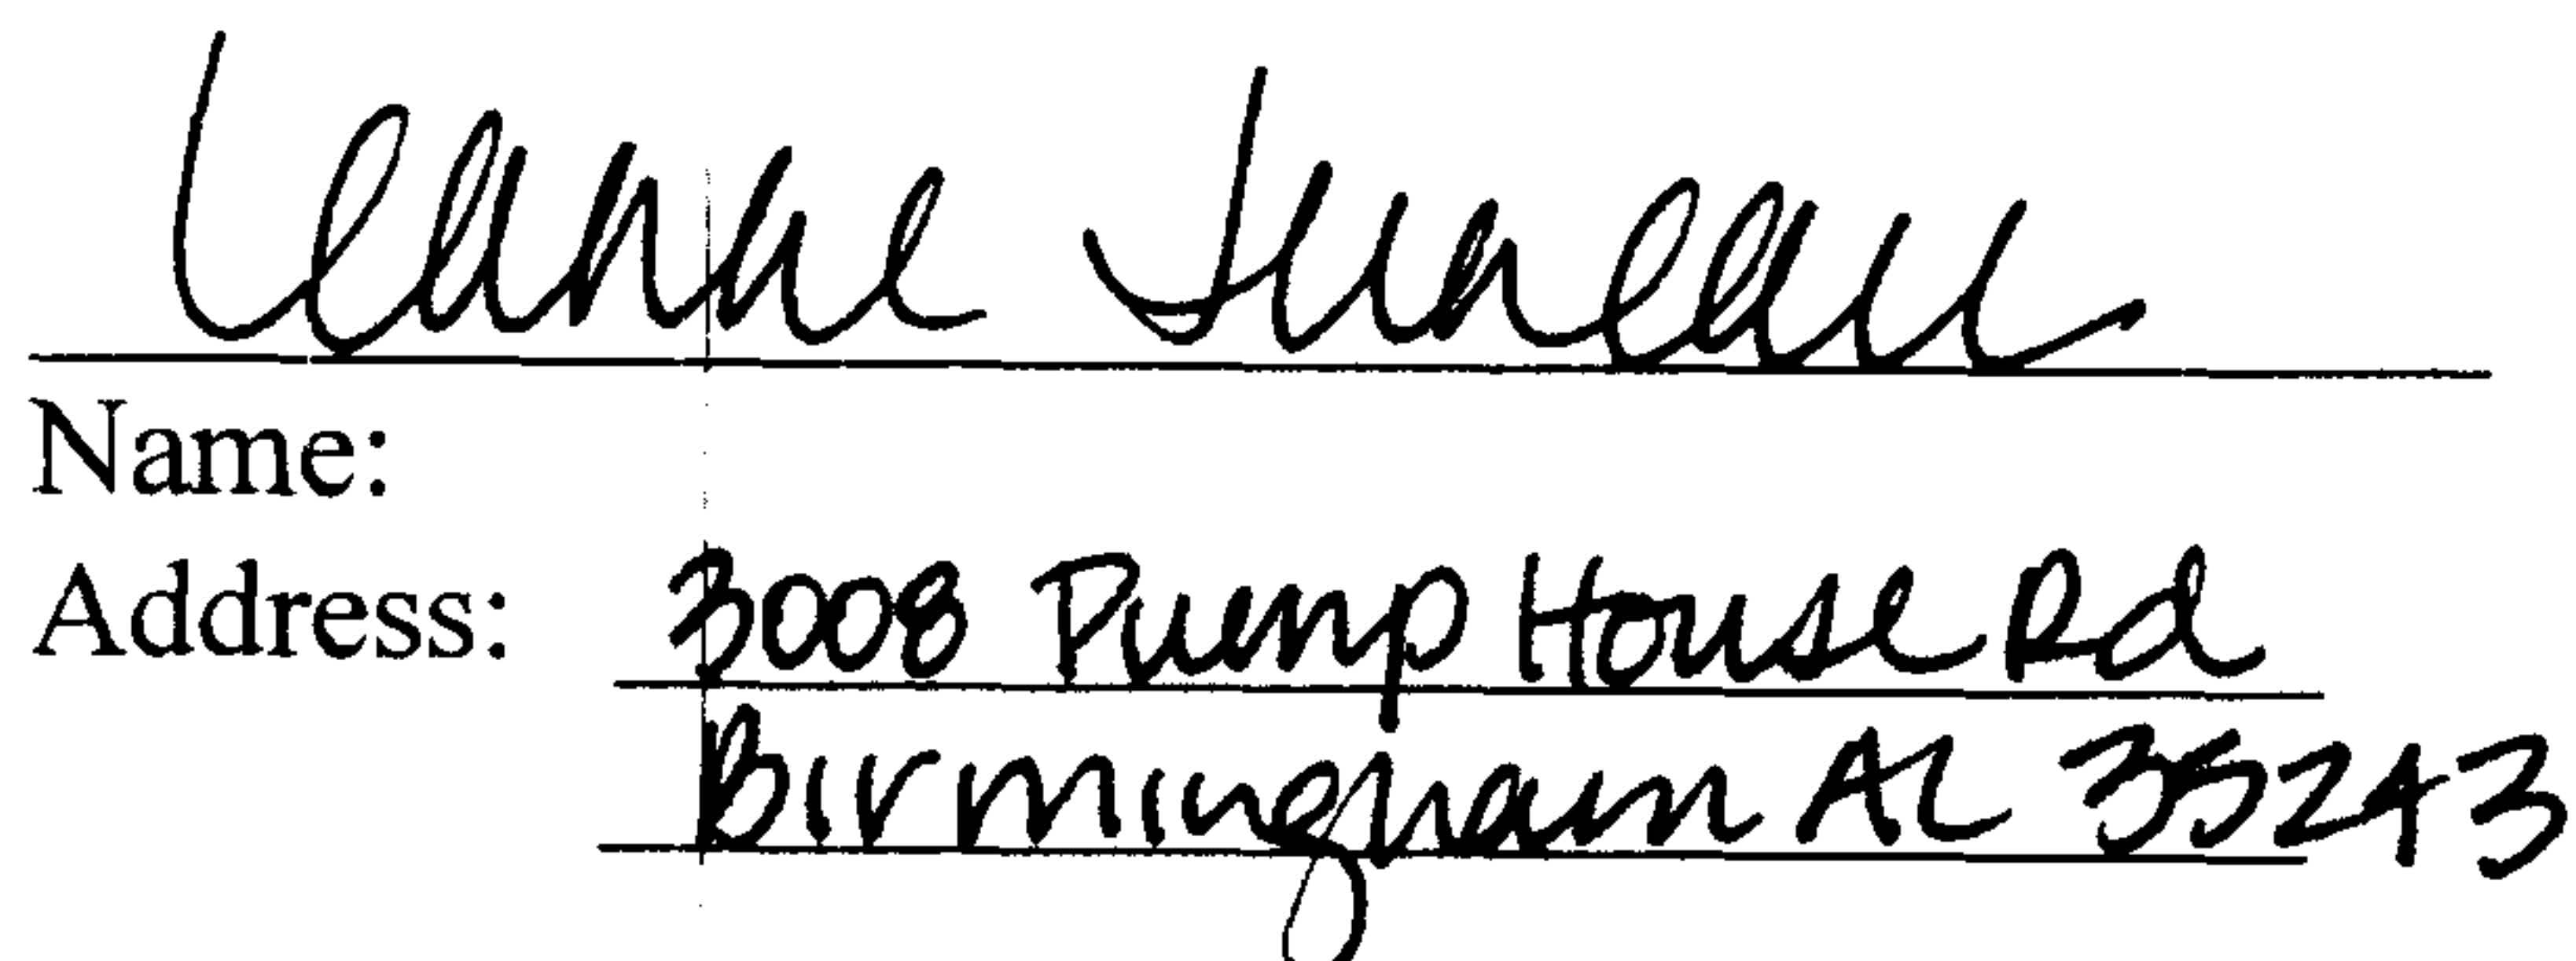 Leanne Juneau
Name:
Address: 3008 Pump House Rd
Birmingham AL 35243